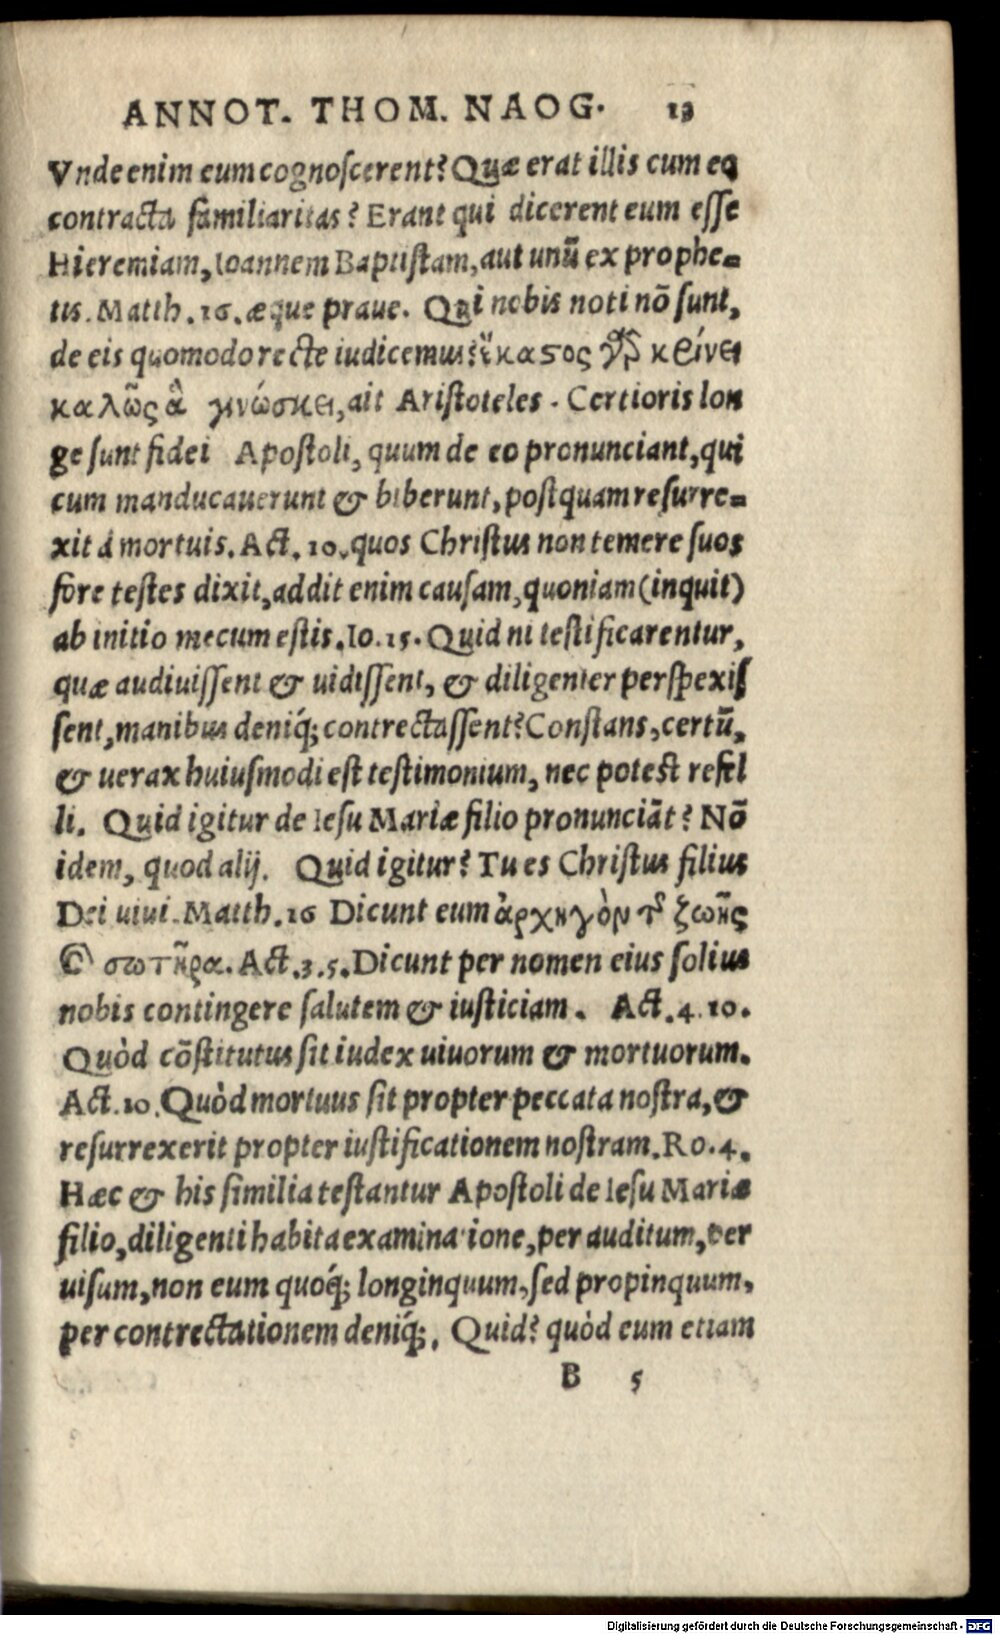 ANNOT. THOM. NAOG. 13
Vnde enim eum cognoſcerent? Quæ erat illis cum eo
contracta familiaritas? Erant qui dicerent eum eſſe
Hieremiam, Ioannem Baptiſtam, aut unũ ex prophe-
tis. Matth. 16. æque praue. Qui nobis noti nõ ſunt,
de eis quomodo recte iudicemus? ἕκαϛος γὰρ κρίνει
καλῶς ἃ γινώσκει, ait Ariſtoteles. Certioris lon
ge ſunt fidei Apoſtoli, quum de eo pronunciant, qui
cum manducauerunt & biberunt, poſtquam reſurre-
xit à mortuis. Act. 10. quos Chriſtus non temere ſuos
fore teſtes dixit, addit enim cauſam, quoniam (inquit)
ab initio mecum eſtis. Io. 15. Quid ni teſtificarentur,
quæ audiuiſſent & uidiſſent, & diligenter perſpexiſ
ſent, manibus deniq́; contrectaſſent? Conſtans, certũ,
& uerax huiuſmodi eſt teſtimonium, nec poteſt refel
li. Quid igitur de Ieſu Mariæ filio pronunciãt? Nõ
idem, quod alij. Quid igitur? Tu es Chriſtus filius
Dei uiui. Matth. 16 Dicunt eum ἀρχηγὸν τῆς ζωῆς
καὶ σωτῆρα. Act. 3. 5. Dicunt per nomen eius ſolius
nobis contingere ſalutem & iuſticiam. Act. 4. 10.
Quòd cõſtitutus ſit iudex uiuorum & mortuorum.
Act. 10. Quòd mortuus ſit propter peccata noſtra, &
reſurrexerit propter iuſtificationem noſtram. Ro. 4.
Hæc & his ſimilia teſtantur Apoſtoli de Ieſu Mariæ
filio, diligenti habita examinatione, per auditum, per
uiſum, non eum quoq́; longinquum, ſed propinquum,
per contrectationem deniq́;. Quid? quòd eum etiam
B 5
Digitalisierung gefördert durch die Deutsche Forschungsgemeinschaft - DFG